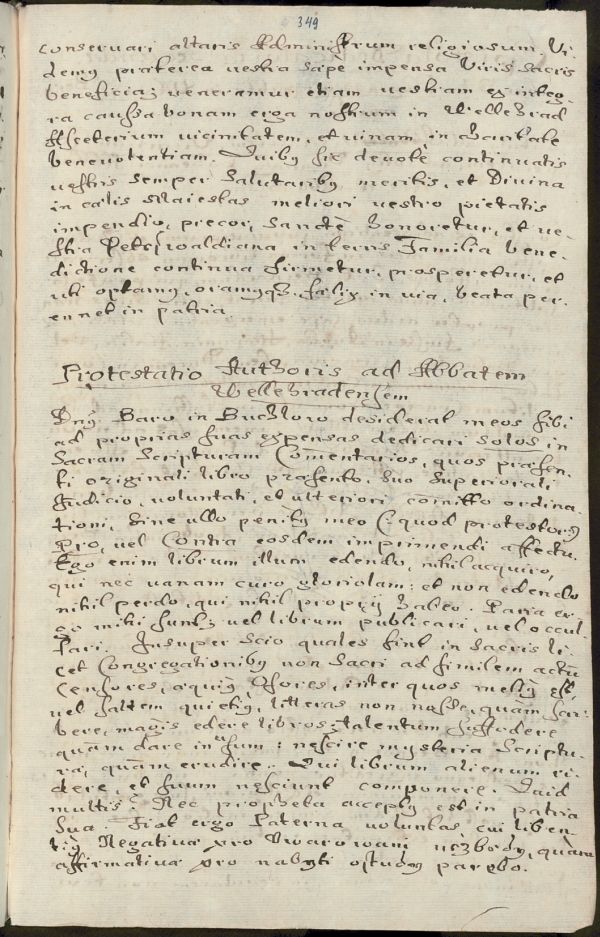 349
conservari altaris Administrum religiosum. Vi-
demus praeterea vestra saepè impensa Viris sacris
beneficia; veneramur etiam vestram ex integ-
ra caussa bonam erga nostrum in Wellehrad
Asceterium vicinitatem, et vivnam in charitate
benevolentiam. Quibus sic devotè continuatis
vestris semper salutaribus meritis, et Divina
in caelis Maiestas meliori vestro pietatis
impendio, precor, sanctè honoretur, et ve-
stra Petrswaldiana in terris Familia bene-
dictione continua firmetur, prosperetur, et
uti optamus, oramusqz, faelix in via, beata per-
ennet in patria.
Protestatio Authoris ad Abbatem
Wellehradensem
Dnus Baro in Buchlow desiderat meos sibi
ad proprias suas expensas dedicari solos in
Sacram Scripturam Commentarios, quos praesen-
ti originali libro praesento, suo superiorali
Judicio, voluntati, et ulteriori comitto ordina-
tioni, sine ullo penitus meo (: quod protestor :)
Pro, vel Contra eosdem imprimendi affectu.
Ego enim librum illum edendo, nihil acquiro,
qui nec vanam curo gloriolam: et non edendo
nihil perdo, qui nihil proprij habeo. Paria er-
go mihi sunt; vel librum publicari, vel occul-
tari. Insuper scio quales sint in sacris li-
cet Congregationibus non sacri ad similem actum
Censores, aequius Osores, inter quos melius est,
vel saltem quietius, litteras non nosse, quam scri-
bere, magis edere libros; talentum suffodere
quam dare in usum: nescire mysteria Scriptu-
rae, quam erudire. Qui librum alienum ri-
dere, et suum nesciunt componere. Quid
multis? Nec propheta acceptus est in patria
sua. Fiat ergo Paterna voluntas, cui liben-
tius Negativae pro qvam
affirmativae pro